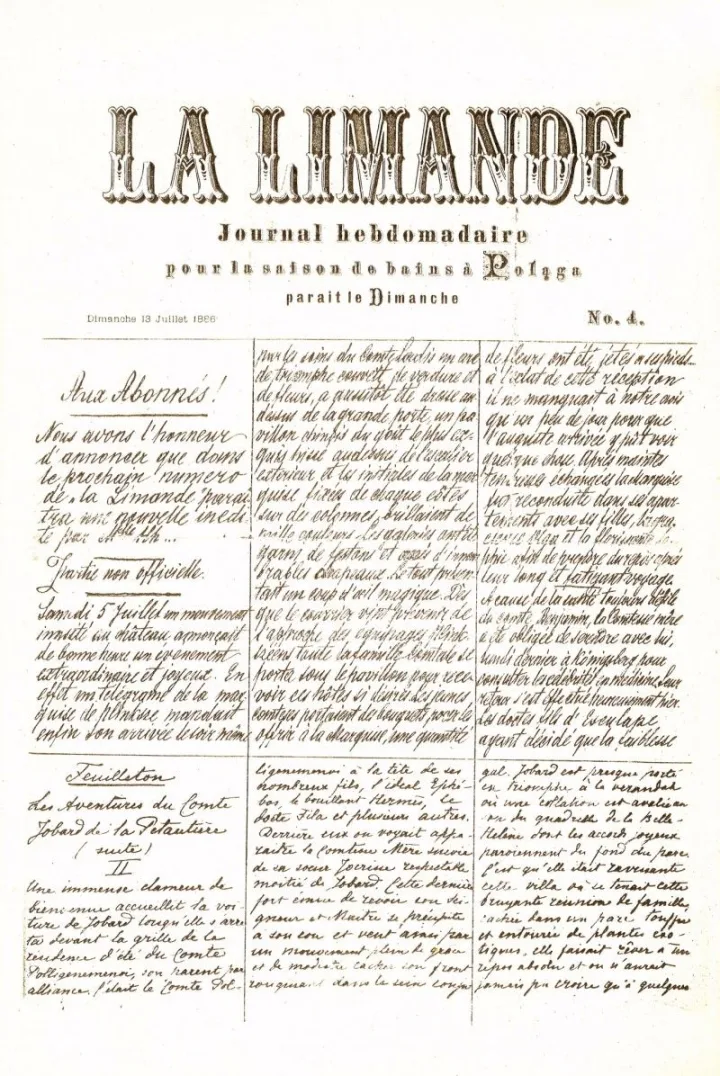 LA LIMANDE
Journal hebdomadaire
pour la saison de bains à Poląga
parait le Dimanche
Dimanche 13 Juillet 1886
No. 4.
Aux Abonnés!
Nous avons l'honneur
d'annoncer que dans
le prochain numero
de "La Limande" parai-
tra une nouvelle inedi-
te par
Partie non officielle.
Samedi 5 Juillet un mouvement
inusité au château annonçait
de bonne heure un évenement
extraordinaire et joyeux. En
effet un télégrame de la mar-
quise de mandait
enfin son arrivée le soir même
par les soins du Comte en arc
de triomphe couvert de verdure et
de fleurs, a aussitôt été drossé au
dessus de la grande porte, un pa-
villon chinois du goût le plus ex-
quis hissé au dessus de l'escalier
exterieur et les initiales de la mar-
quise fixées de chaque côtés
sur des colonnes, brillaient de
mille couleurs. Les galeries ont été
garni de festons et ornés d'innom-
brables drapeaux. Le tout présen-
tait un coup d'œil magique. Dès
que le courrier vint prévenir de
l'approche des equipages
toute la famille Comtale se
porta sous le pavillon pour rece-
voir ces hôtes si désirés. Les jeunes
comtesses portaient des bouquets pour les
offrir à la Marquise, une quantité
de fleurs ont été jetés à ses pieds
à l'éclat de cette réception
il ne manquait à notre avis
qu'un peu de jour pour que
l'auguste arrivée y put voir
quelque chose. Après maintes
tendresses échangées la Marquise
fut reconduite dans ses apar-
tements avec ses filles, la
Olga et la So-
phie afin de prendre du repos après
leur long et fatigant voyage.
A cause de la santé toujours débile
du comte Benjamin, la Comtesse mère
a été obligée de se rendre avec lui,
lundi dernier à Königsberg pour
consulter la célébrité en médicine. Leur
retour s'est effectué heureusement hier.
Les doctes fils d'Esculape
ayant décidé que la faiblesse
Feuilleton
Les Aventures du Comte
Jobard de la Pétaudière
(suite)
II
Une immense clameur de
bienvenue accueillit la voi-
ture de Jobard lorsqu'elle s'arrê-
ta devant la grille de la
residence d'été du Comte
Polligenemenoi, son parent par
alliance. C'était le Comte Pol-
ligenemenoi à la tête de ses
nombreux fils, l'ideal Ephé-
bos, le bouillant Hermès, le
docte Fila et plusieurs autres.
Derrière eux on voyait appa-
raître la Comtesse Mère suivie
de sa soeur Jocrisse respectable
moitié de Jobard. Cette dernière
fort émue de revoir son Sei-
gneur et Maitre se précipite
à son cou et vent ainsi par
un mouvement plein de grace
et de modestie cacher son front
rougissant dans le sein conju-
gal. Jobard est presque porté
en triomphe à la verandah
où une collation est servie au
son du quadrille de la Belle-
Helène dont les accords joyeux
parviennent du fond du parc.
C'est qu'elle était ravissante
cette villa où se tenait cette
bruyante réunion de famille,
cachée dans un parc touffu
et entourée de plantes exo-
tiques, elle faisait rêver à un
repos absolu et on n'aurait
jamais pu croire qu'à quelques